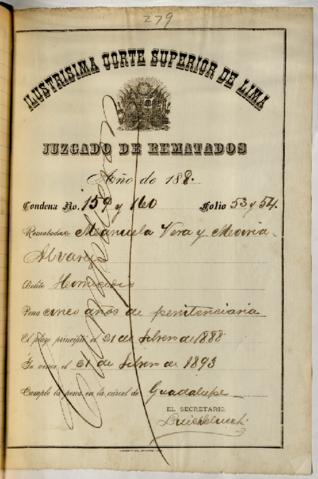 279
ILUSTRISIMA CORTE SUPERIOR DE LIMA
JUZGADO DE REMATADOS
Año de 188
Condena No. 159 y 160 Folio 53 y 54
Manuela Vera y Maria
Alvarez
Delito Homicidio
Pena cinco años de penitenciaria
El plazo principió el 21 de Febrero de 1888
Se vence el 21 de Febrero de 1893
Cumple la pena en la carcel de Guadalupe
EL SECRETARIO